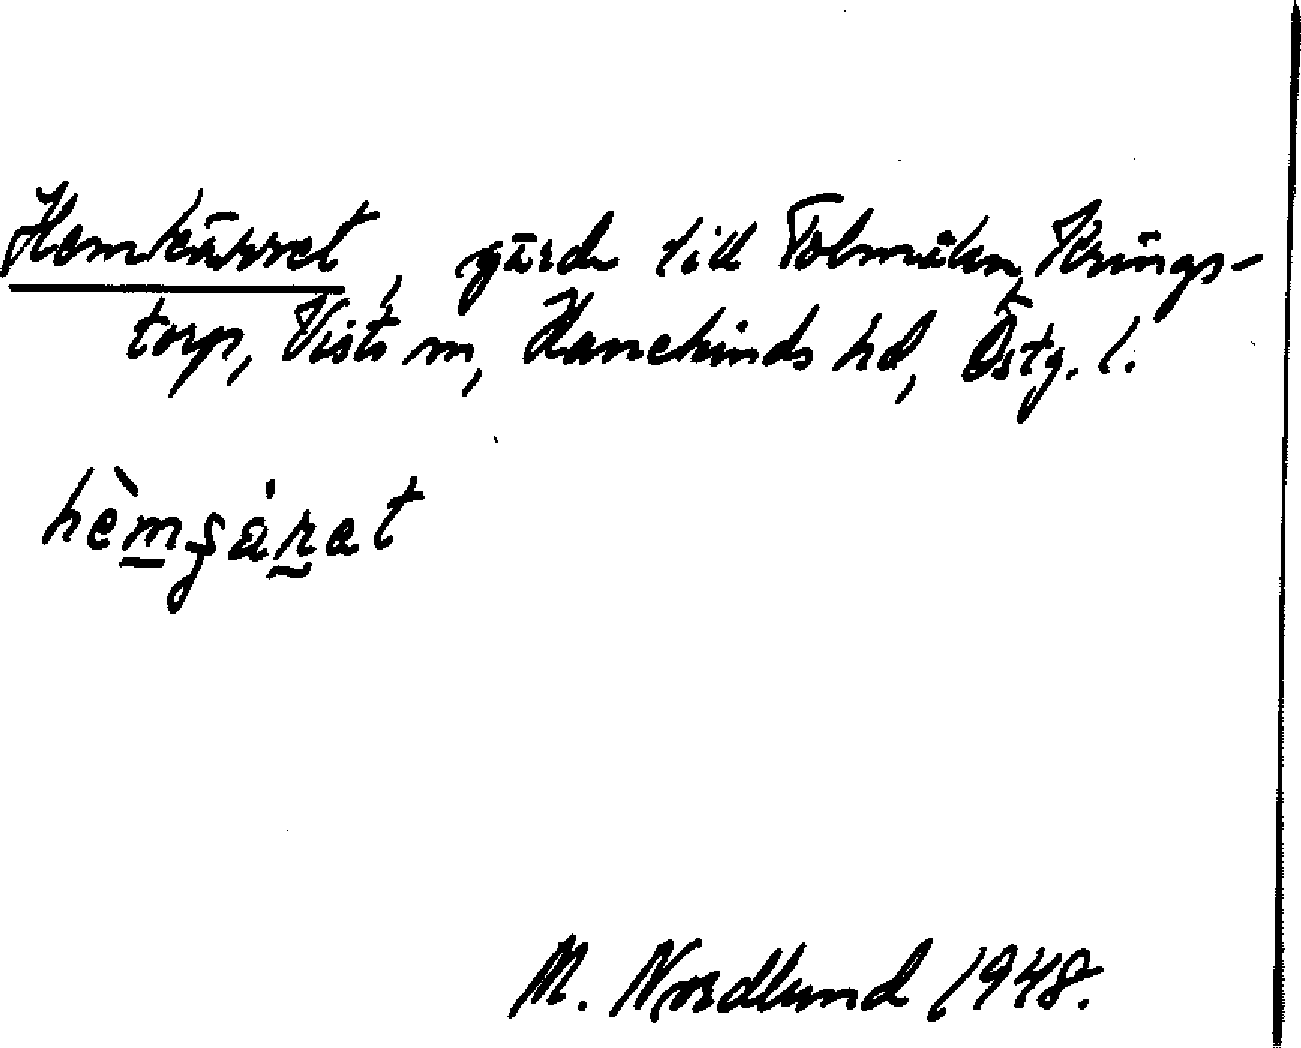 Hemkärret, gärde till Tolmålen, Krings-
torp, Vists sn, Hanekinds hd, Östg. l.
hèmşáret
M. Nordlund 1948.